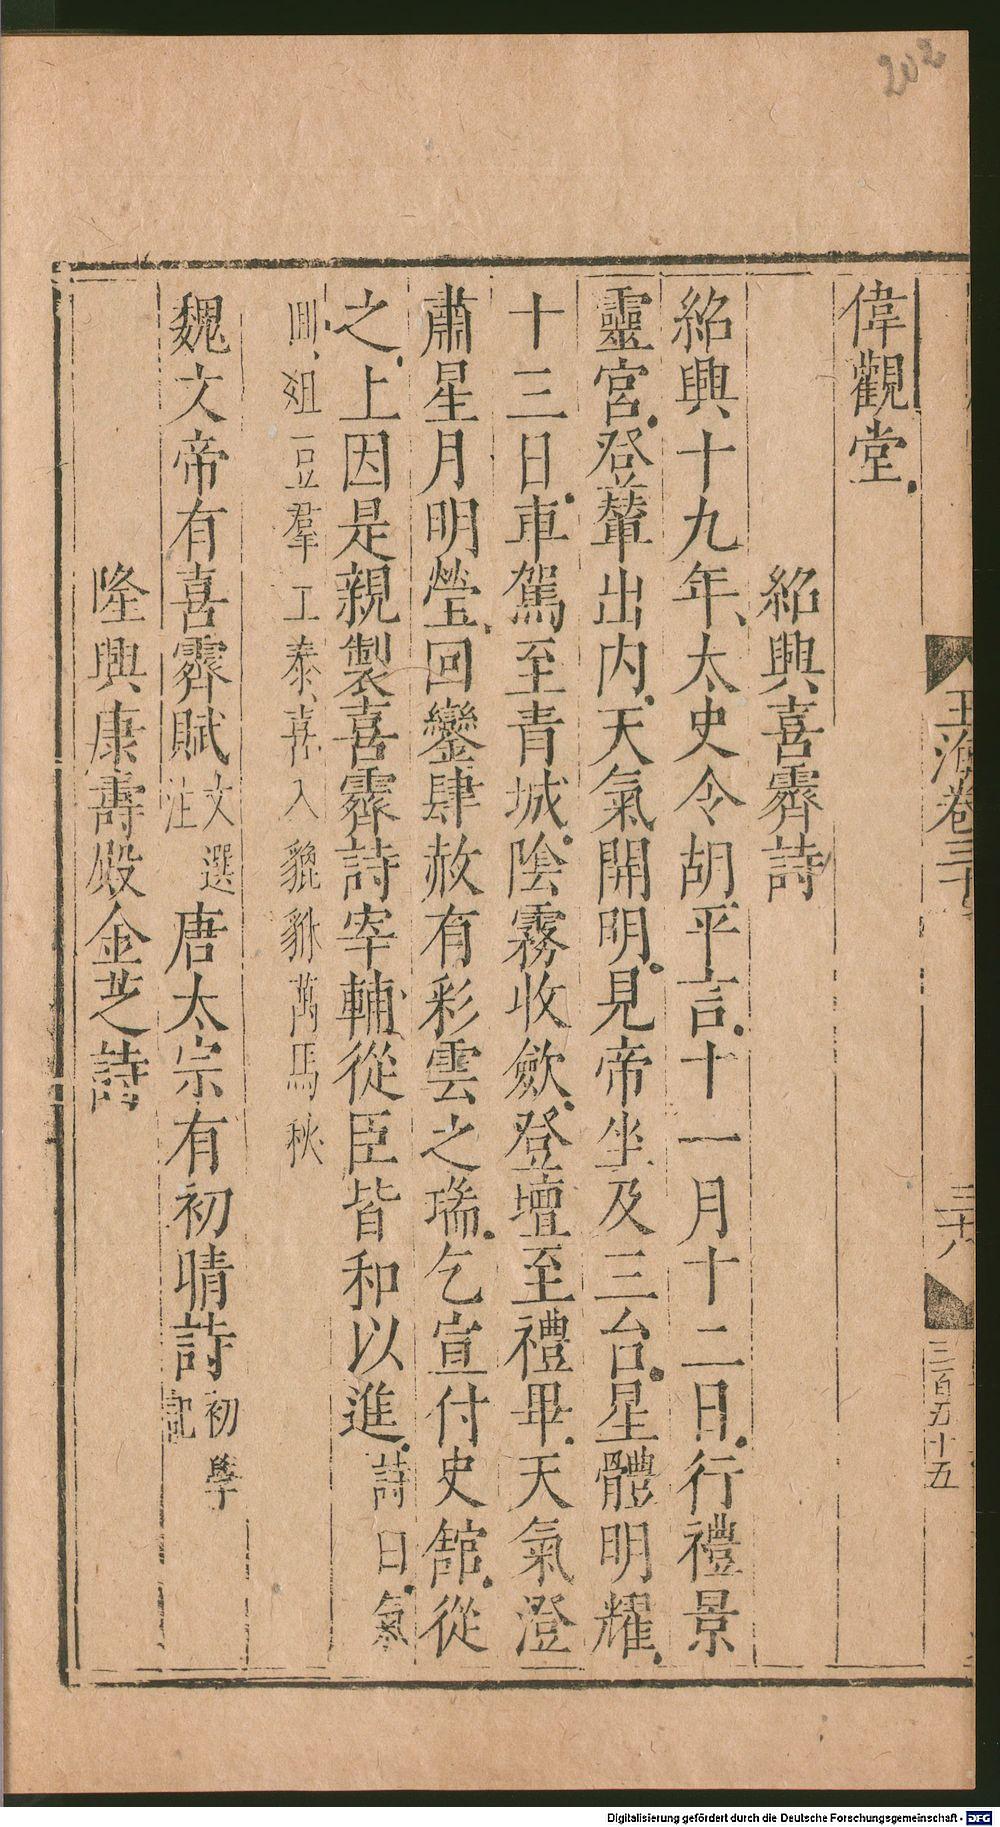 202
玉海卷三十
三十八
三百五十五
偉觀堂
紹興喜霽詩
紹興十九年太史令胡平言十一月十二日行禮景
靈宮登輦出内天氣開明見帝坐及三台星體明耀
十三日車駕至青城陰霧收歛登壇至禮畢天氣澄
肅星月明瑩回鑾肆赦有彩雲之瑞乞宣付史館從
之上因是親製喜霽詩宰輔從臣皆和以進詩曰氣
俎豆羣工泰喜入貔貅萬馬秋
魏文帝有喜霽賦文選注唐太宗有初晴詩初學記
隆興康壽殿金芝詩
Digitalisierung gefördert durch die Deutsche Forschungsgemeinschaft - DFG